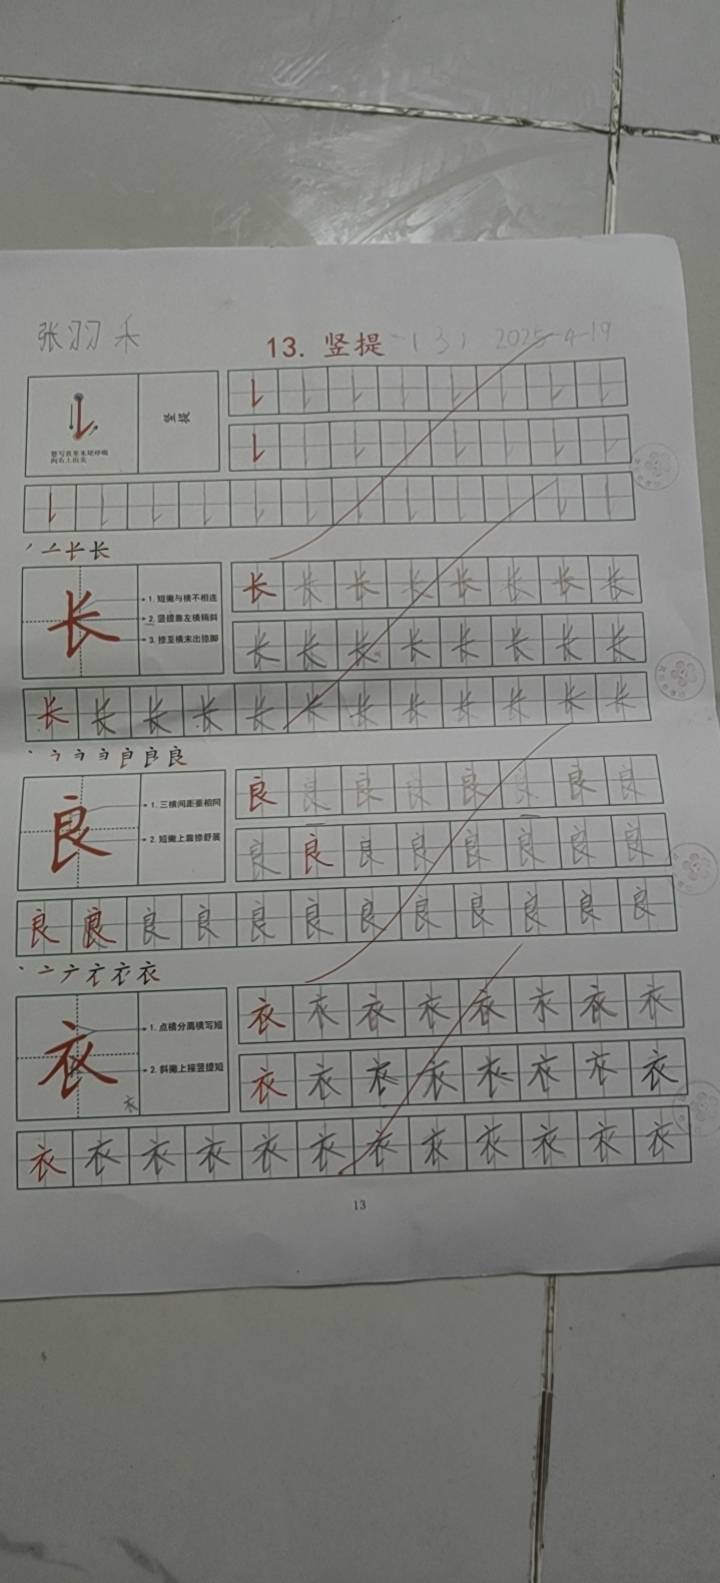 张羽禾
13. 竖提 (3) 2025-4-19
竖提
长
1. 短撇与横不相连
2. 竖提靠左横稍斜
3. 捺至横末出捺脚
长 长 长 长 长 长 长 长
长 长 长 长 长 长 长 长
长 长 长 长 长 长 长 长 长 长 长 长
良
1. 三横间距要相同
2. 短撇上靠捺舒展
良 良 良 良 良 良 良 良
良 良 良 良 良 良 良 良
良 良 良 良 良 良 良 良 良 良 良 良
衣
1. 点横分离横写短
2. 斜撇上接竖提短
衣 衣 衣 衣 衣 衣 衣 衣
衣 衣 衣 衣 衣 衣 衣 衣
衣 衣 衣 衣 衣 衣 衣 衣 衣 衣 衣 衣
13